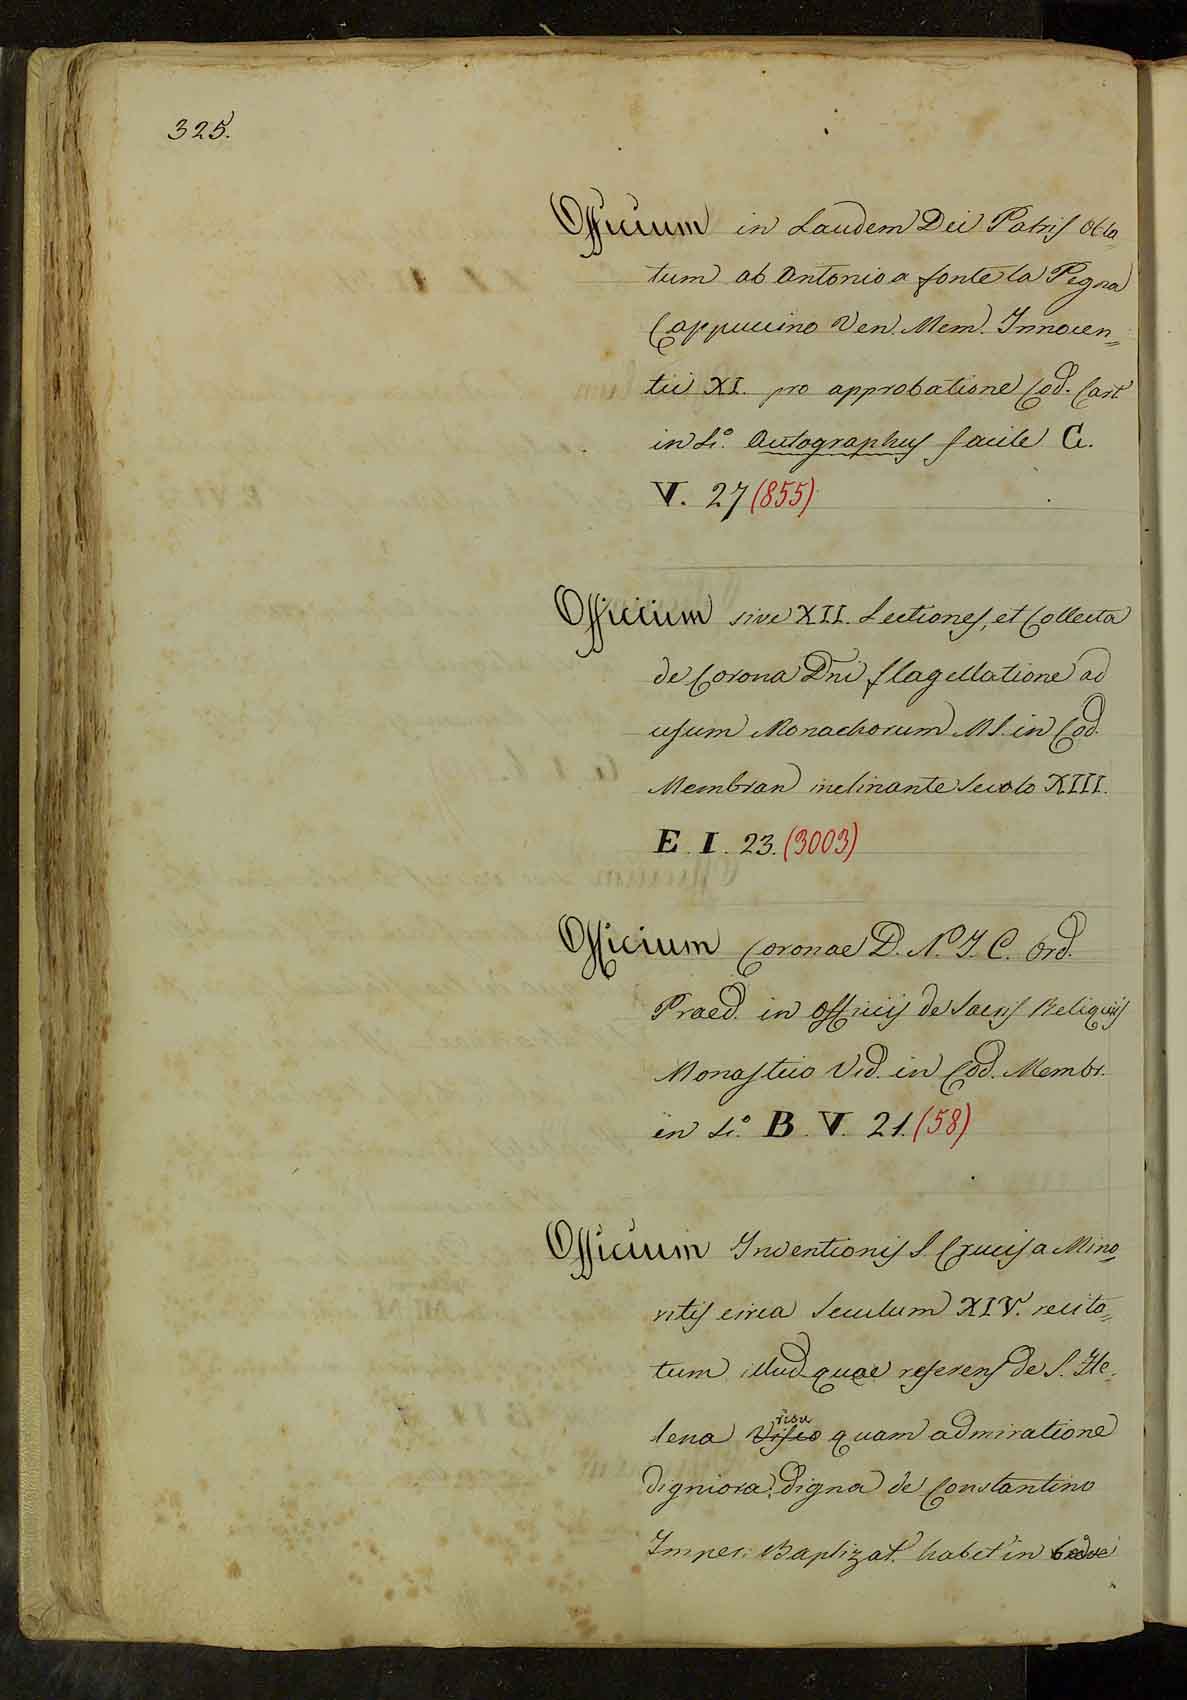 325.
Officium in Laudem Dei Patris obla=
tum ab Antonio a fonte la Pegna
Cappuccino Ven. Mem. Innocen=
tii XI. pro approbatione Cod. Cart
in 4.º Autographus facile G.
V. 27 (855)
Officium sive XII. Lectiones, et Collecta
de Corona Dni flagellatione ad
usum Monachorum MS. in Cod.
Membran inclinante Seculo XIII.
E. I. 23. (3003)
Officium Coronae D. N. J. C. Ord.
Praed. in officiis de Sacris Reliquiis
Monastico Vid. in Cod. Membr.
in 4.º B. V. 21. (58)
Officium Inventionis S. Crucis a Mino=
ritis circa Seculum XIV. recita=
tum illud quae referens de S. He=
lena risu quam admiratione
digniora, digna de Constantino
Imper. Baptizat. habet in